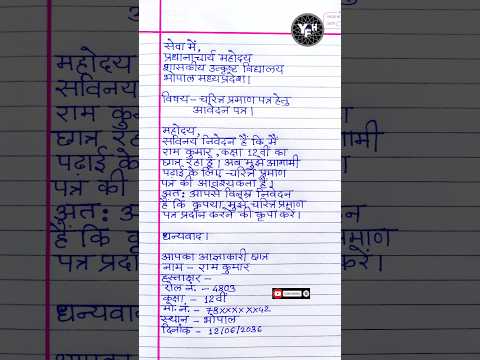 सेवा में,
प्रधानाचार्य महोदय
शासकीय उत्कृष्ट विद्यालय
भोपाल मध्यप्रदेश।
विषय – चरित्र प्रमाण पत्र हेतु
आवेदन पत्र।
महोदय,
सविनय निवेदन है कि मैं
राम कुमार, कक्षा 12वीं का
छात्र रहा हूं। अब मुझे आगामी
पढ़ाई के लिए चरित्र प्रमाण
पत्र की आवश्यकता है।
अतः आपसे विनम्र निवेदन
है कि कृपया मुझे चरित्र प्रमाण
पत्र प्रदान करने की कृपा करें।
धन्यवाद।
आपका आज्ञाकारी छात्र
नाम – राम कुमार
हस्ताक्षर –
रोल नं. – 4803
कक्षा – 12वीं
मो. नं. – 78xxxxxx42
स्थान – भोपाल
दिनांक – 12/06/2036